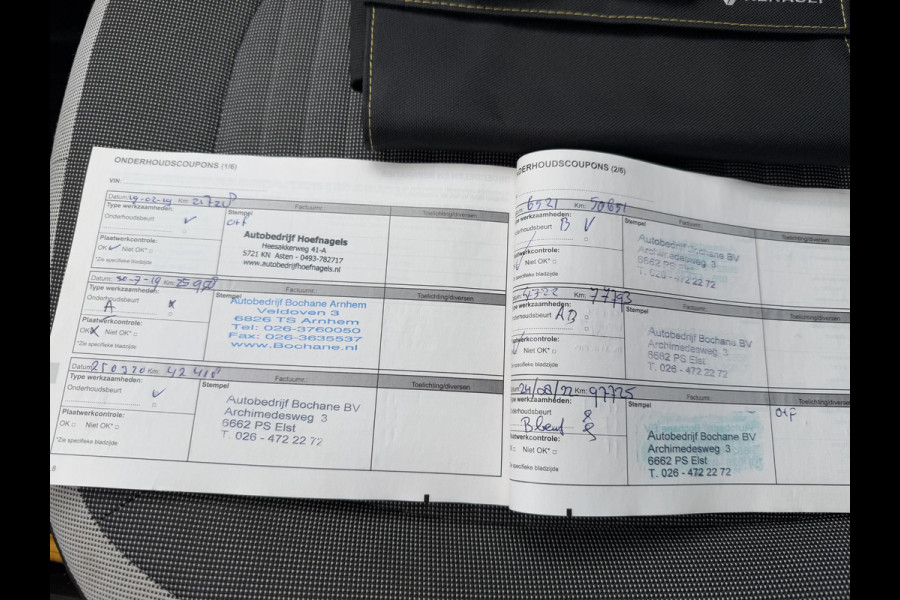 RENAULT
ONDERHOUDSCOUPONS (1/6)
VIN:
Datum: 19-02-19 Km:
Type werkzaamheden:
Onderhoudsbeurt ✓
Plaatwerkcontrole:
OK ✓ Niet OK*
*Zie specifieke bladzijde
Factuurnr.
Stempel
O+F
Autobedrijf Hoefnagels
Heesakkerweg 41-A
5721 KN Asten - 0493-782717
www.autobedrijfhoefnagels.nl
Toelichting/diversen
Datum: 30-7-19 Km:
Type werkzaamheden:
Onderhoudsbeurt
A x
Plaatwerkcontrole:
OK x Niet OK*
*Zie specifieke bladzijde
Factuurnr.
Stempel
Autobedrijf Bochane Arnhem
Veldoven 3
6826 TS Arnhem
Tel: 026-3760050
Fax: 026-3635537
www.Bochane.nl
Toelichting/diversen
Datum: 250320 Km: 42418
Type werkzaamheden:
Onderhoudsbeurt ✓
Plaatwerkcontrole:
OK Niet OK*
*Zie specifieke bladzijde
Factuurnr.
Stempel
Autobedrijf Bochane BV
Archimedesweg 3
6662 PS Elst
T. 026 - 472 22 72
Toelichting/diversen
8
ONDERHOUDSCOUPONS (2/6)
6521 Km: 50651
werkzaamheden:
beurt B ✓
werkcontrole:
Niet OK*
specifieke bladzijde
Factuurnr.
Stempel
Autobedrijf Bochane BV
Archimedesweg 3
6662 PS Elst
T. 026 - 472 22 72
Toelichting/diversen
4722 Km: 77793
werkzaamheden:
houdsbeurt AB
werkcontrole:
Niet OK*
specifieke bladzijde
Factuurnr.
Stempel
Autobedrijf Bochane BV
Archimedesweg 3
6662 PS Elst
T. 026 - 472 22 72
Toelichting/diversen
24/08/22 Km: 97725
werkzaamheden:
houdsbeurt
B beurt
werkcontrole:
Niet OK*
specifieke bladzijde
Factuurnr.
Stempel
Autobedrijf Bochane BV
Archimedesweg 3
6662 PS Elst
T. 026 - 472 22 72
Toelichting/diversen
O+F